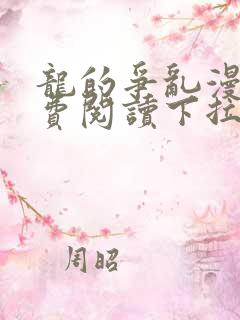 龍的爭亂漫
費閱讀下拉
周昭